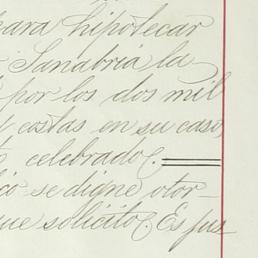 para hipotecar
Sanabria la
por los dos mil
costas en su caso,
celebrado.
se digne otor-
que solicito. Es jus